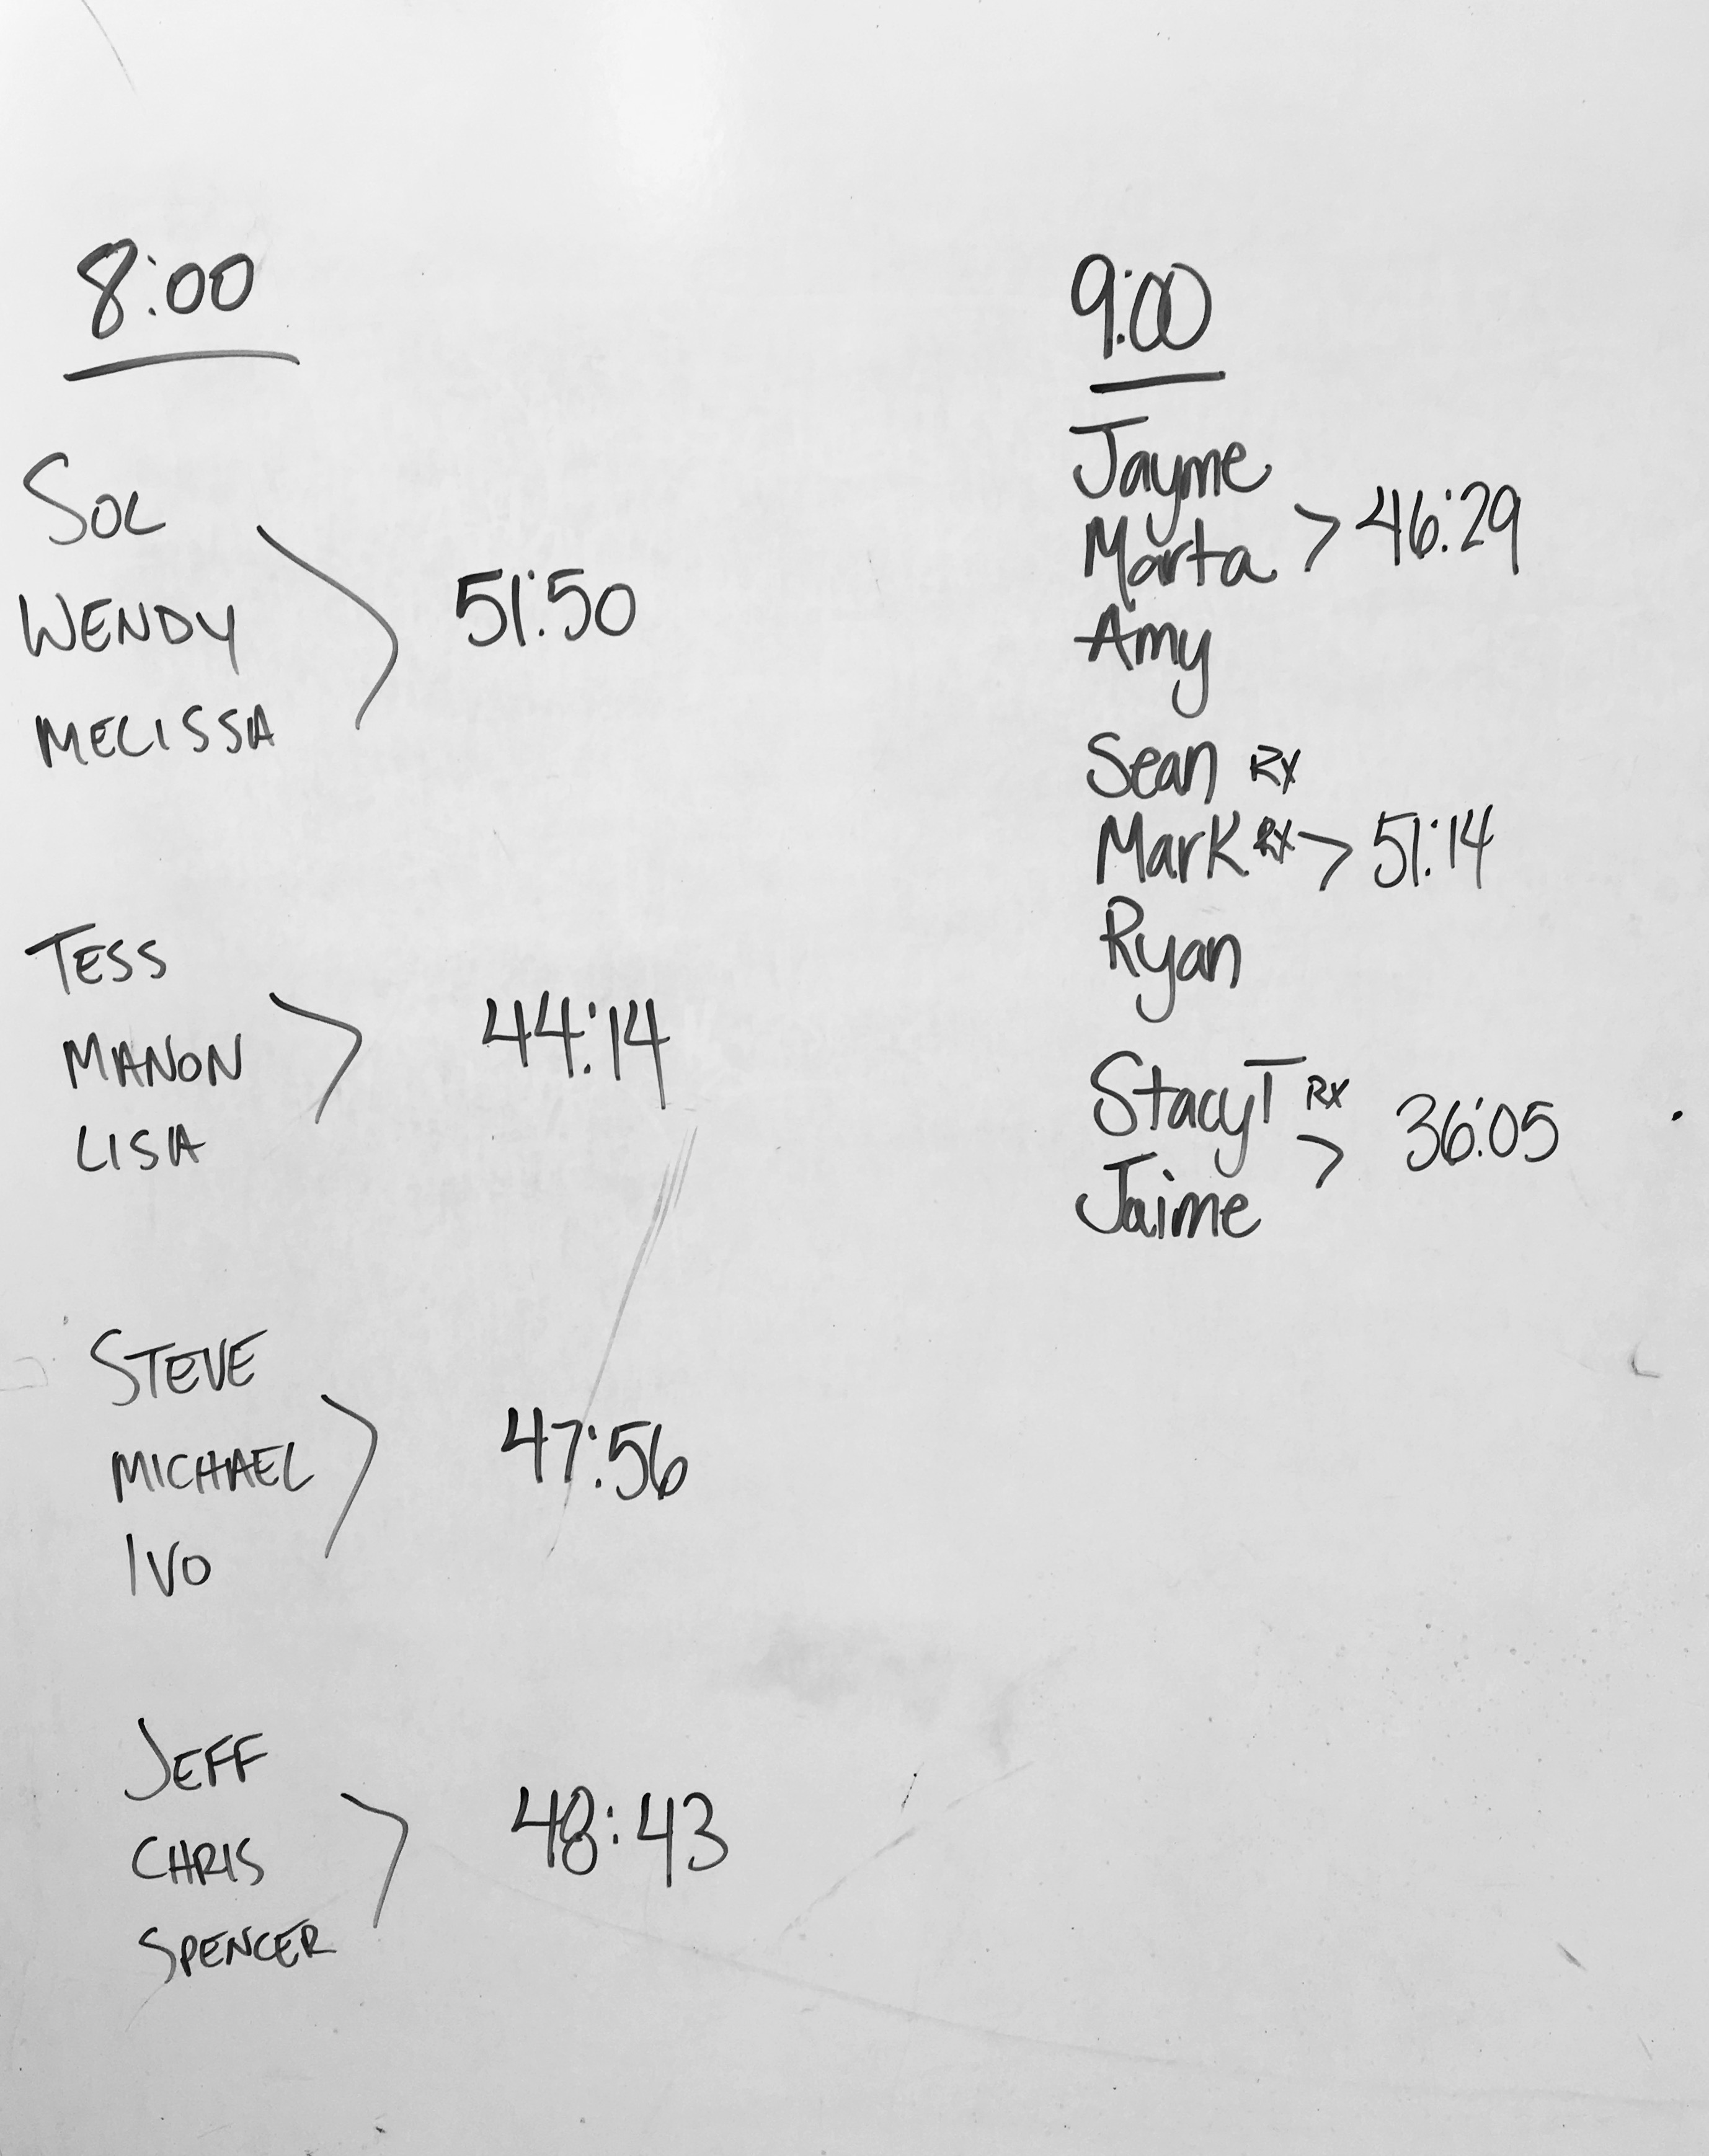 8:00
SOL
WENDY
MELISSA
51:50
TESS
MANON
LISA
44:14
STEVE
MICHAEL
IVO
47:56
JEFF
CHRIS
SPENCER
48:43
9:00
Jayme
Marta > 46:29
Amy
Sean RX
Mark RX > 51:14
Ryan
Stacy T RX
> 36:05
Jaime